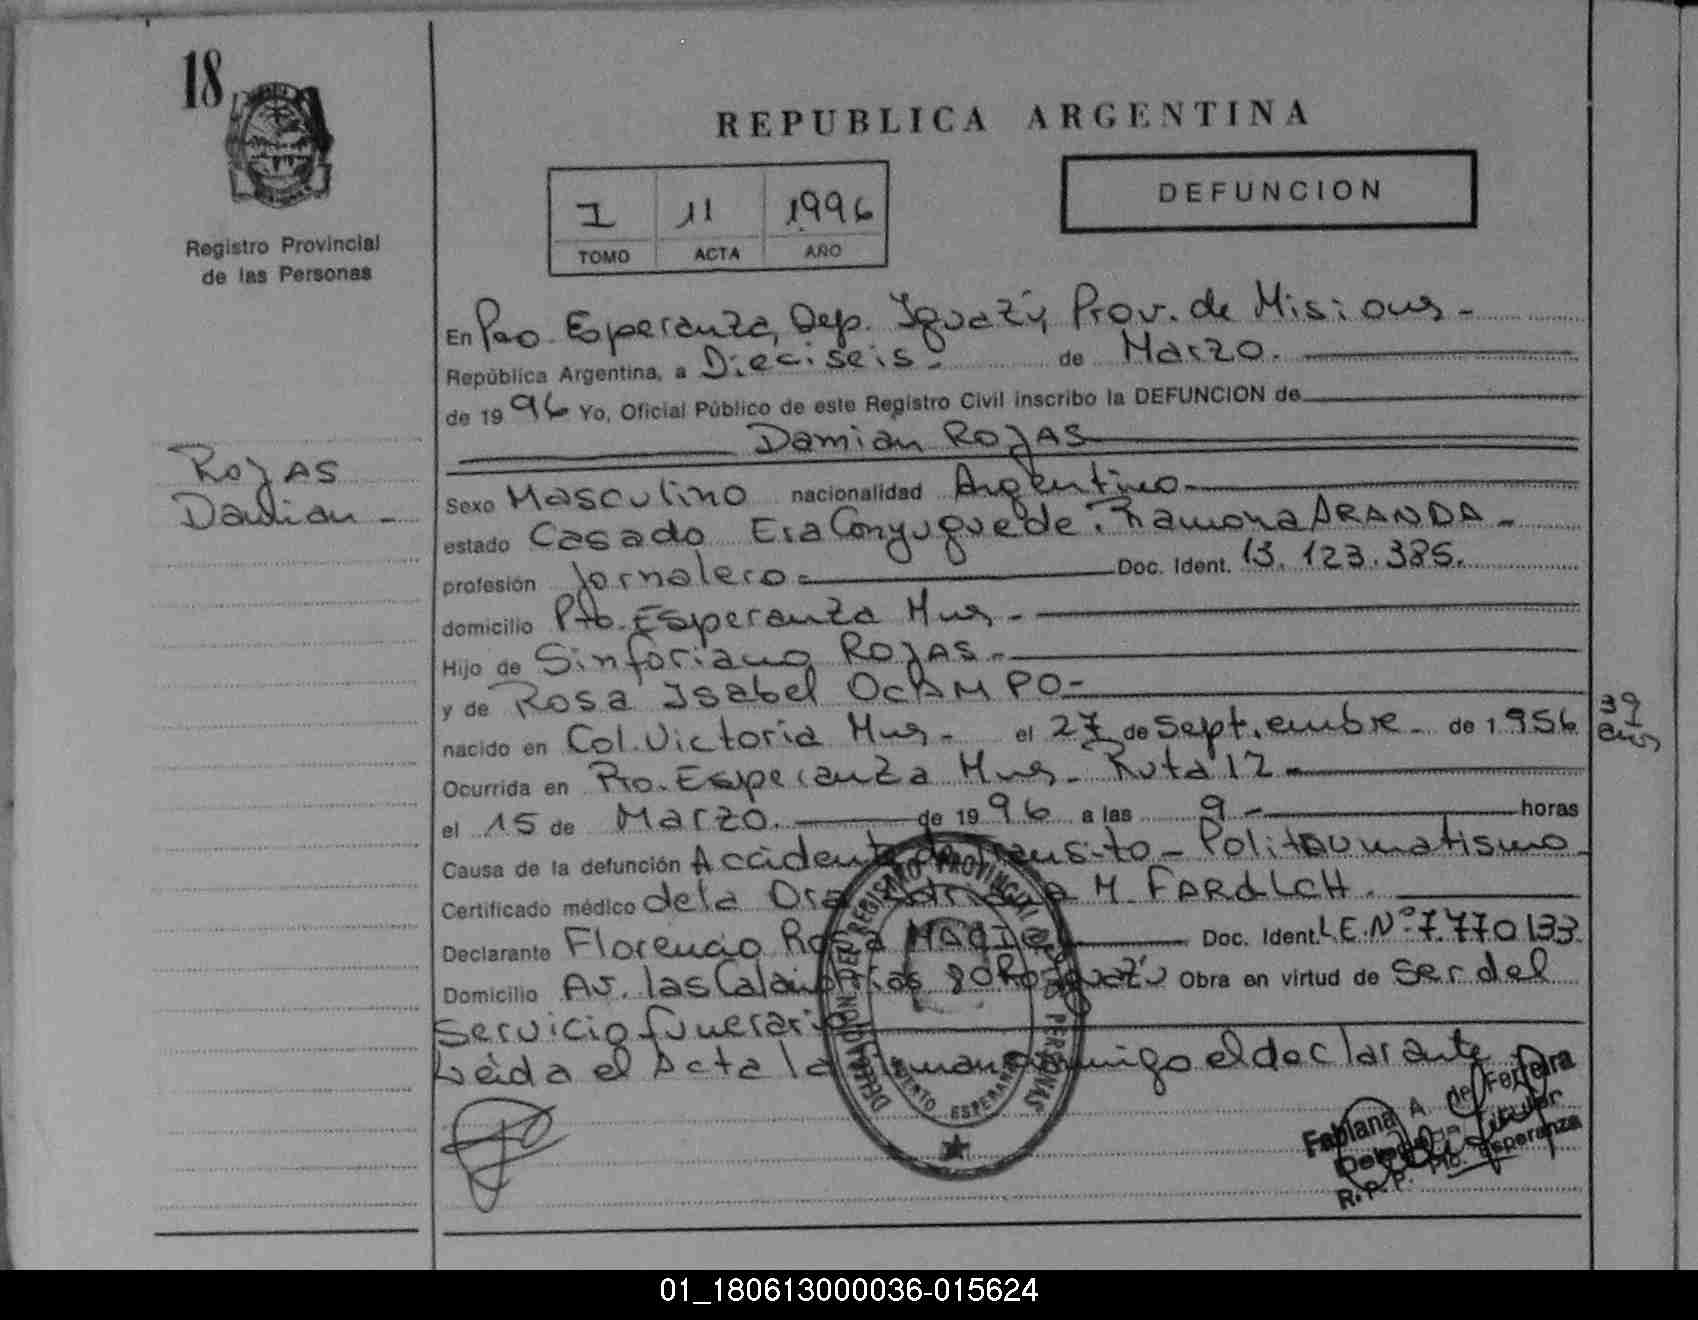 18
Registro Provincial
de las Personas
REPUBLICA ARGENTINA
I 11 1996
TOMO ACTA AÑO
DEFUNCION
En Pto. Esperanza, Dep. Iguazú, Prov. de Misiones -
República Argentina, a Dieciseis - de Marzo.
de 1996 Yo, Oficial Público de este Registro Civil inscribo la DEFUNCION de
Damian ROJAS
ROJAS
Damian -
Sexo Masculino nacionalidad Argentino -
estado Casado Era Conyugue de. Ramona ARANDA -
profesión Jornalero - Doc. Ident. 13.123.385.
domicilio Pto. Esperanza Mnes -
Hijo de Sinforiano ROJAS -
y de Rosa Isabel OCAMPO -
nacido en Col. Victoria Mnes - el 27 de Septiembre - de 1956
39
años
Ocurrida en Pto. Esperanza Mnes - Ruta 12 -
el 15 de Marzo. de 1996 a las 9 - horas
Causa de la defunción Accidente de Transito - Politraumatismo -
Certificado médico de la Dra. M.
Declarante Florencio Doc. Ident. L.E.Nº 7.770133
Domicilio Av. las Iguazú Obra en virtud de Ser del
Servicio funerario
Leída el Acta la conmigo el declarante
DELEGACION DEL REGISTRO PROVINCIAL DE LAS PERSONAS
PUERTO ESPERANZA
Fabiana A. de Ferreira
Delegada Titular
R.P.P. Pto. Esperanza
01_180613000036-015624